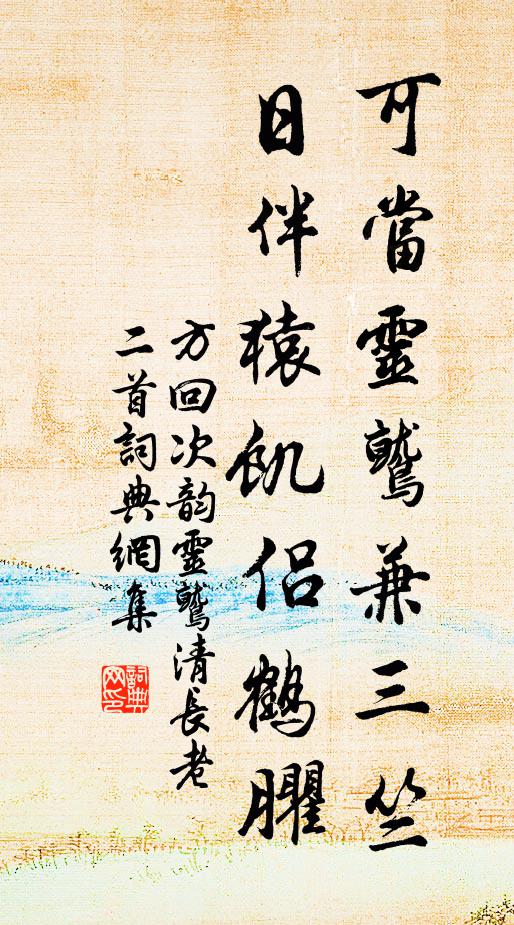 可當靈鷲兼三竺
日伴猿飢侣鶴臞
方回次韵靈鷲清長老
二首詞典網集
詞典
网印